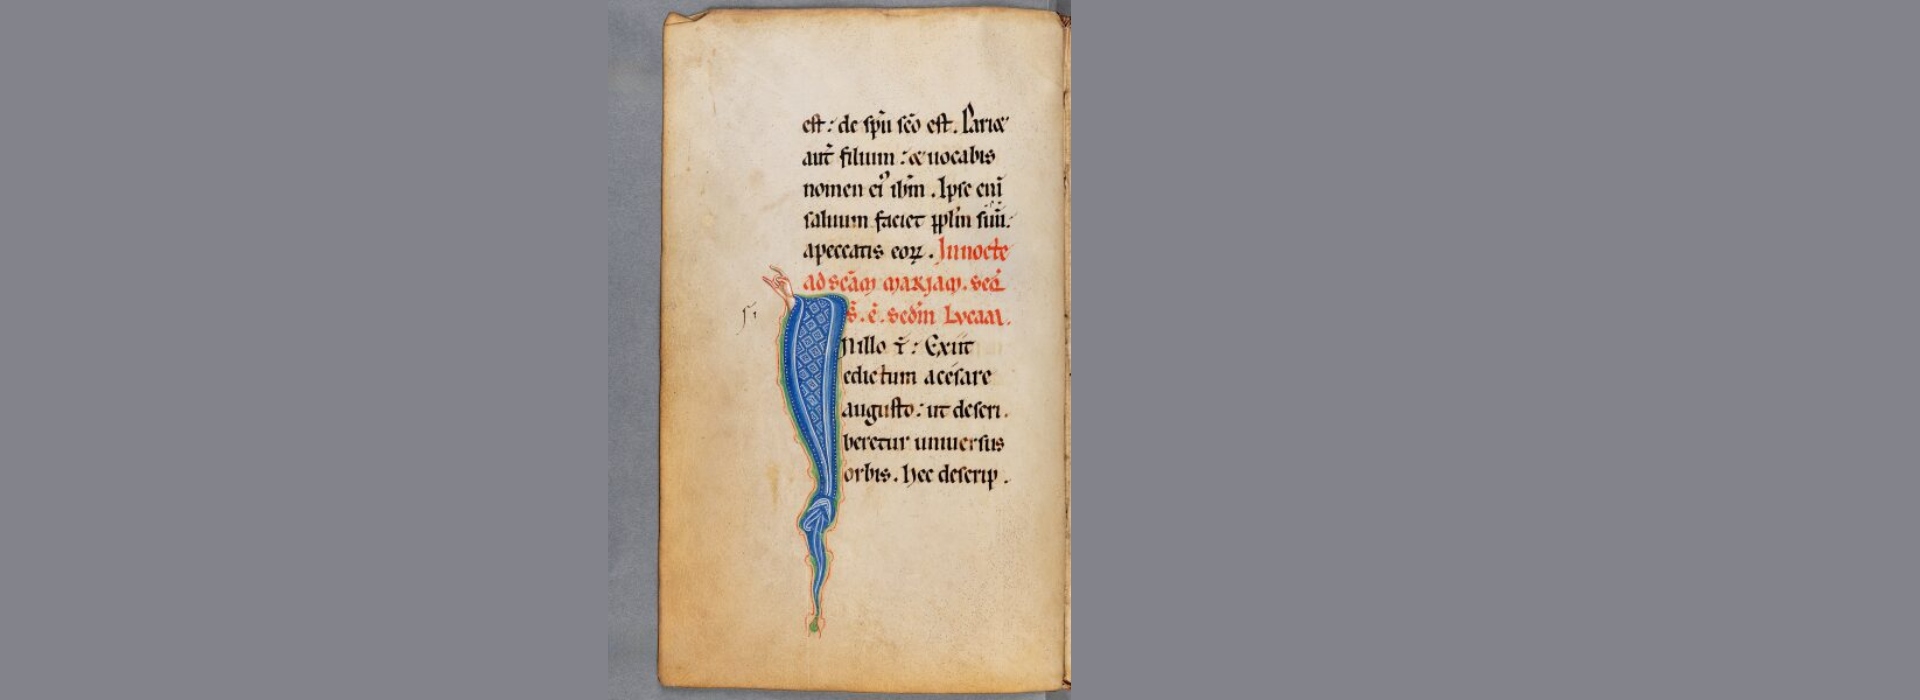 est: de spū scō est. Pariæ
aut̄ filium: & uocabis
nomen ei' ihm̄. Ipse eni̅
saluum faciet pplm̄ suū:
apeccatis eoꝝ. Innocte
ad scām mariam. seq̄
s̄. ē. sedm̄ Lucam.
Nillo t̄: Exiit
edictum acesare
augusto: ut descri.
beretur uniuersus
orbis. Hec descrip.